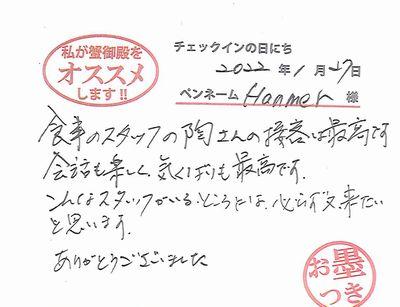 私が蟹御殿を
オススメ
します!!
チェックインの日にち
2022年 1月27日
ペンネーム Hanmer 様
食事のスタッフの陶さんの接客は最高です
会話も楽しく、気くばりも最高です。
こんなスタッフがいるところには、必らず又来たい
と思います。
ありがとうございました
お墨
つき